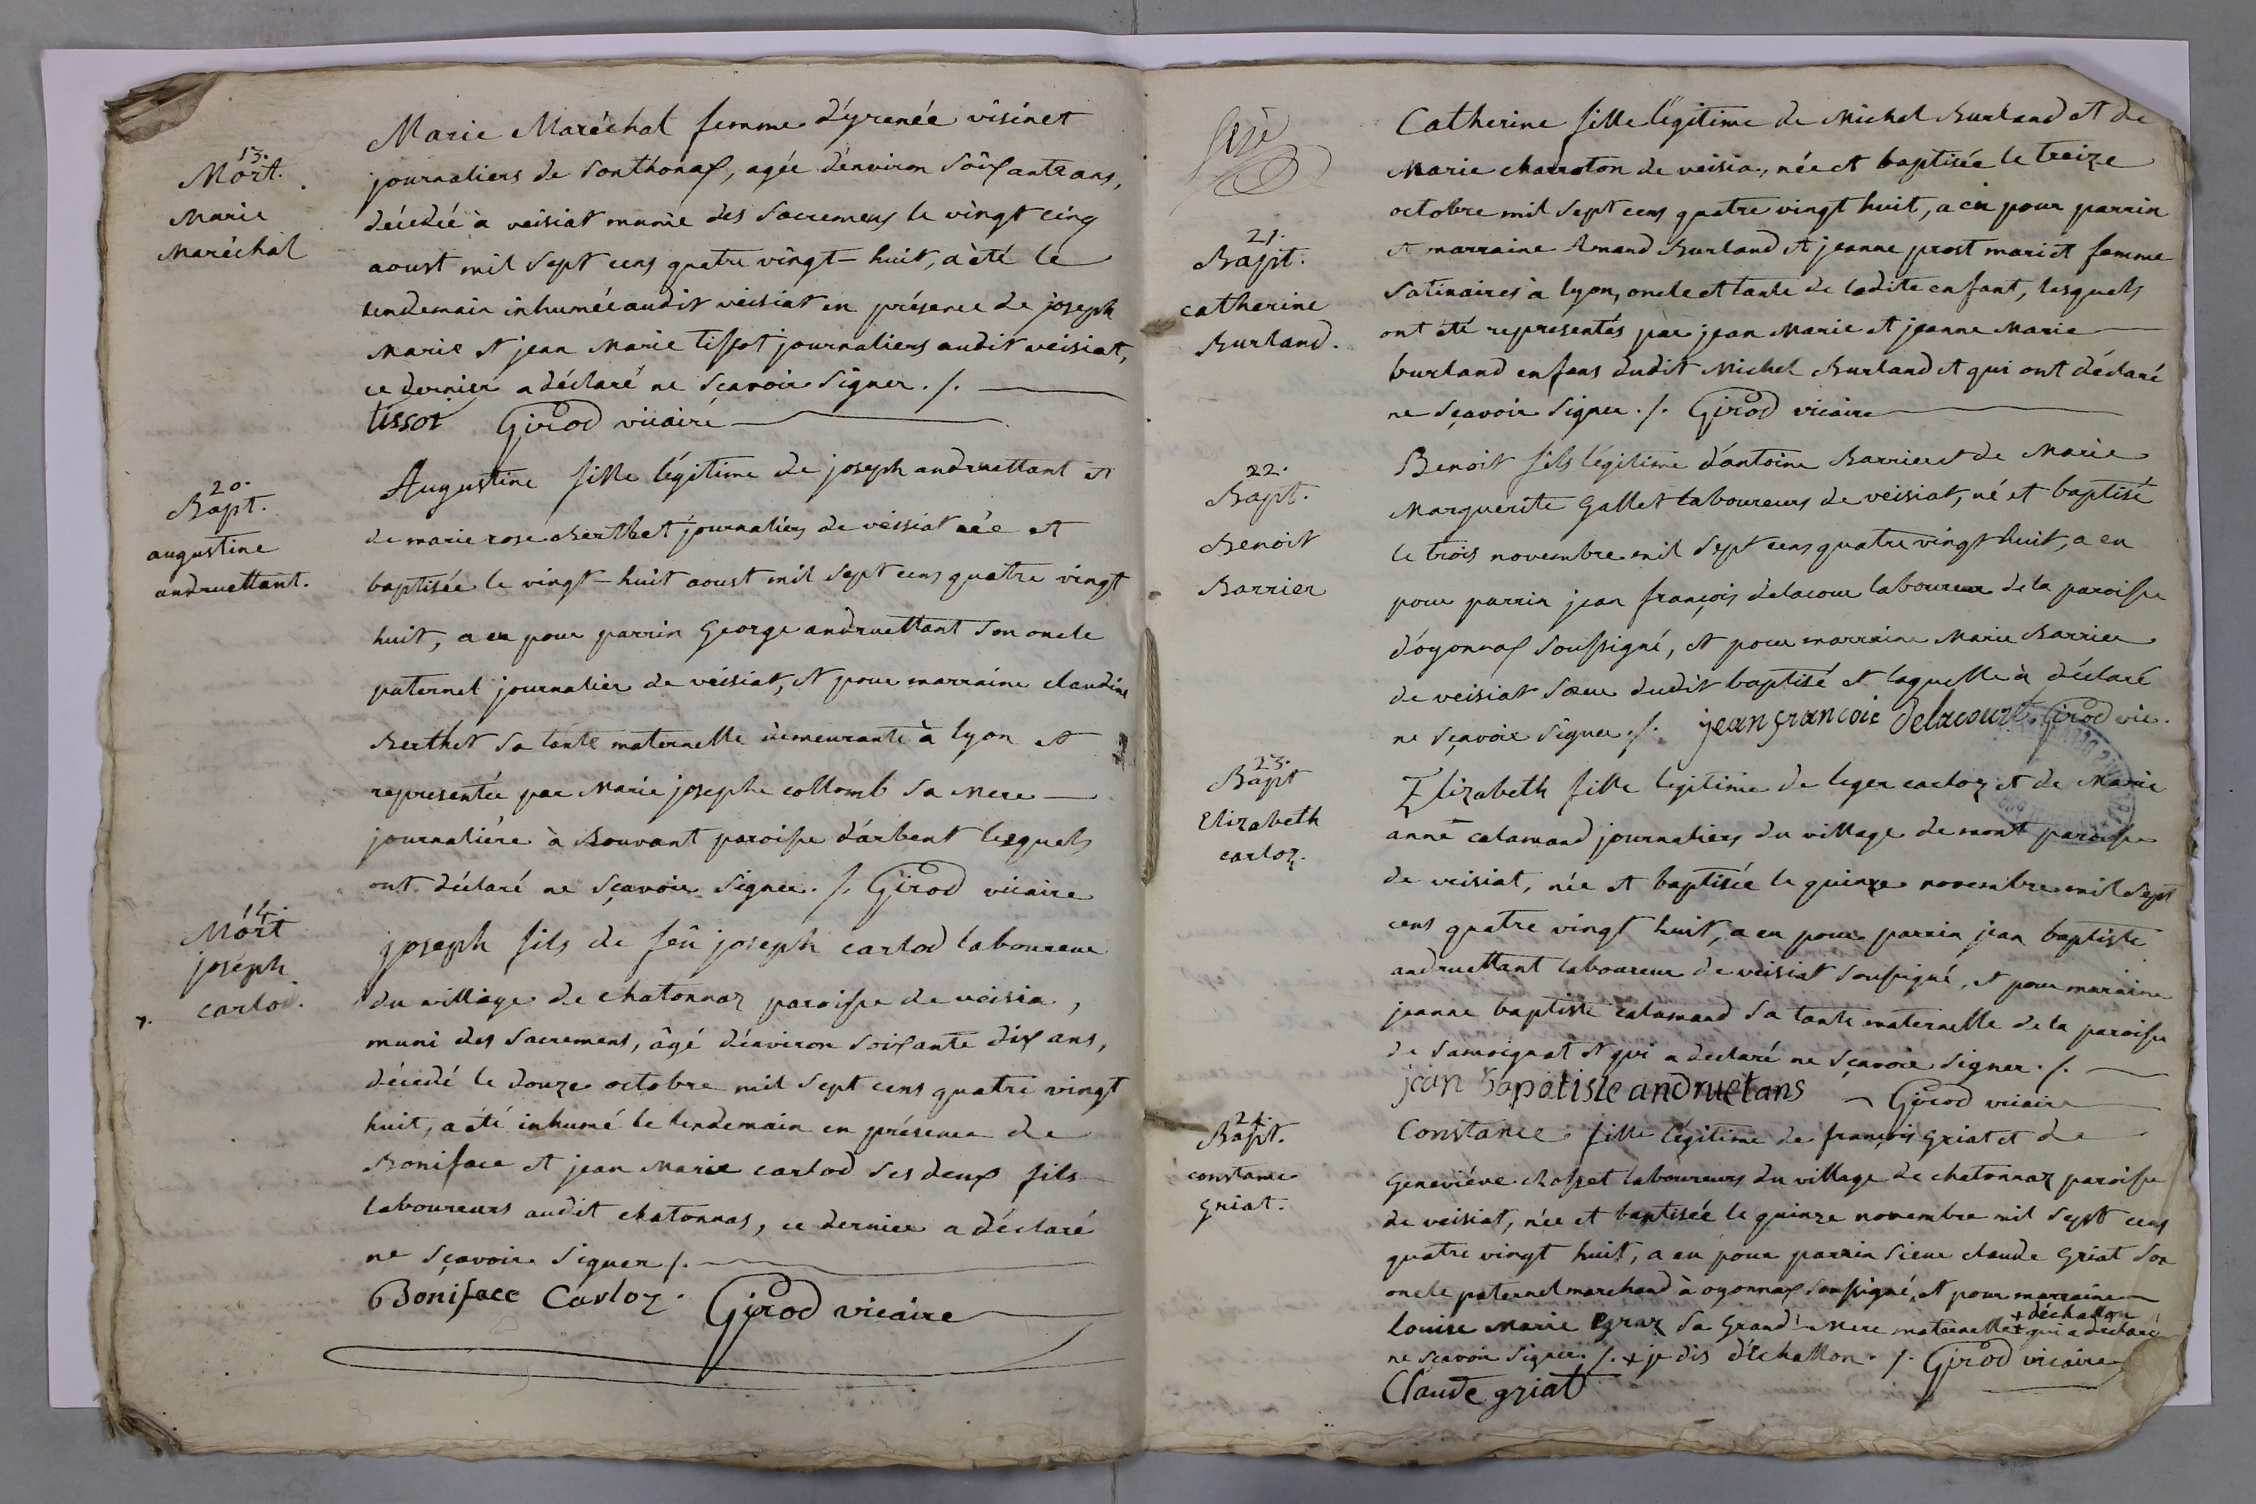 13.
Mort.
Marie
Maréchal
Marie Maréchal femme d'yrenée visinet
journaliers de Sonthonax, agée d'environ Soixante ans,
décédée à veisiat munie des Sacremens le vingt cinq
aoust mil Sept cens quatre vingt-huit, a été le
lendemain inhumée audit veisiat en présence de joseph
Marie et jean Marie Tissot journaliers audit veisiat,
ce dernier a déclaré ne Sçavoir Signer ./.
tissot Girod vicaire
20.
Bapt.
augustine
andruettant.
Augustine fille légitime de joseph andruettant et
de marie rose Berthet journaliers de veisiat née et
baptisée le vingt-huit aoust mil Sept cens quatre vingt
huit, a eu pour parrin George andruettant Son oncle
paternel journalier de veisiat, et pour marraine claudine
Berthet Sa tante maternelle demeurante à lyon et
representée par Marie josephe collomb Sa Mere
journaliére à Bouvant paroisse d'arbent lesquels
ont déclaré ne Sçavoir Signer ./. Girod vicaire
14.
Mort
joseph
carlod.
joseph fils de feû joseph carlod laboureur
du village de chatonnaz paroisse de veisia,
muni des Sacremens, âgé d'environ Soixante dix ans,
décédé le douze octobre mil Sept cens quatre vingt
huit, a été inhumé le lendemain en présence de
Boniface et jean Marie carlod Ses deux fils
laboureurs audit chatonnas, ce dernier a déclaré
ne Sçavoir Signer ./.
Boniface Carloz. Girod vicaire
21.
Bapt.
catherine
Burland.
Catherine fille légitime de Michel Burland et de
Marie charroton de veisia, née et baptisée le treize
octobre mil Sept cens quatre vingt huit, a eu pour parrin
et marraine Amand Burland et jeanne prost mari et femme
Satinaires à lyon, oncle et tante de ladite enfant, lesquels
ont été representés par jean Marie et jeanne Marie
burland enfans dudit Michel Burland et qui ont déclaré
ne Sçavoir Signer ./. Girod vicaire
22.
Bapt.
Benoit
Barrier
Benoit fils légitime d'antoine Barrier et de Marie
Marguerite Gallet laboureurs de veisiat, né et baptisé
le trois novembre mil Sept cens quatre vingt huit, a eu
pour parrin jean françois delacour laboureur de la paroisse
d'oyonnax Soussigné, et pour marraine Marie Barrier
de veisiat Sœur dudit baptisé et laquelle à déclaré
ne Sçavoir Signer ./. jean francoie delacourt Girod vic.
23.
Bapt
Elizabeth
carloz.
Elizabeth fille legitime de leger carloz et de Marie
anne calamand journaliers du village de mont paroisse
de veisiat, née et baptisée le quinze novembre mil Sept
cens quatre vingt huit, a eu pour parrin jean baptiste
andruettant laboureur de veisiat Soussigné, et pour maraine
jeanne baptiste calamand Sa tante maternelle de la paroisse
de Samoignat et qui a declaré ne Sçavoir Signer ./.
jean bapatiste andruetans Girod vicaire
24.
Bapt.
constance
griat.
Constance fille légitime de françois Griat et de
Geneviéve chosset laboureurs du village de chatonnaz paroisse
de veisiat, née et baptisée le quinze novembre mil Sept cens
quatre vingt huit, a eu pour parrin Sieur claude Griat Son
oncle paternel marchand à oyonnax Soussigné, et pour marraine
+ déchallon
louise Marie Sa Grand'-Mere maternelle + qui a déclaré
ne Sçavoir Signer ./. + je dis d'échallon ./. Girod vicaire
Claude griat